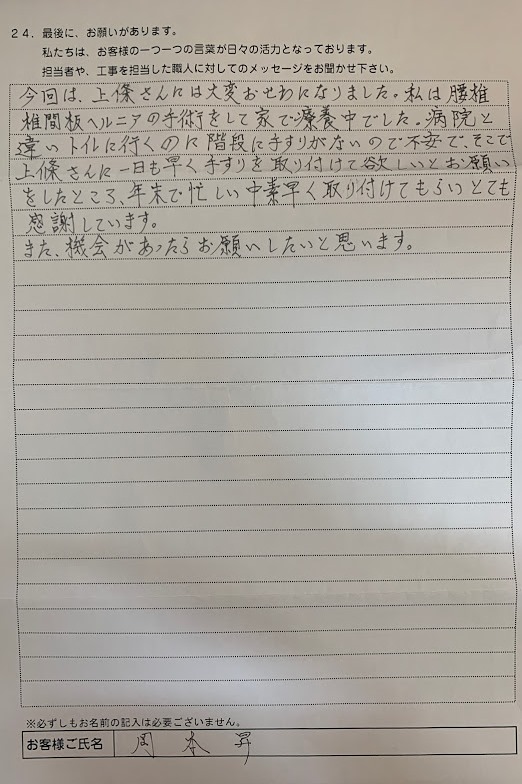 24．最後に、お願いがあります。
私たちは、お客様の一つ一つの言葉が日々の活力となっております。
担当者や、工事を担当した職人に対してのメッセージをお聞かせ下さい。
今回は、上條さんには大変おせわになりました。私は腰椎
椎間板ヘルニアの手術をして家で療養中でした。病院と
違いトイレに行くのに階段に手すりがないので不安で、そこで
上條さんに一日も早く手すりを取り付けて欲しいとお願い
をしたところ、年末で忙しい中素早く取り付けてもらいとても
感謝しています。
また、機会があったらお願いしたいと思います。
※必ずしもお名前の記入は必要ございません。
お客様ご氏名 岡本 昇